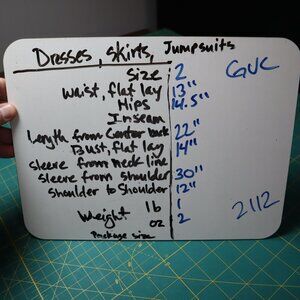 Dresses, Skirts, Jumpsuits
Size 2 GUC
Waist, flat lay 13"
Hips 14.5"
Inseam
Length from Center back 22"
Bust, flat lay 14"
sleeve from neck line
sleeve from shoulder 30"
shoulder to shoulder 12"
Weight lb 1
oz 2 2112
Package size